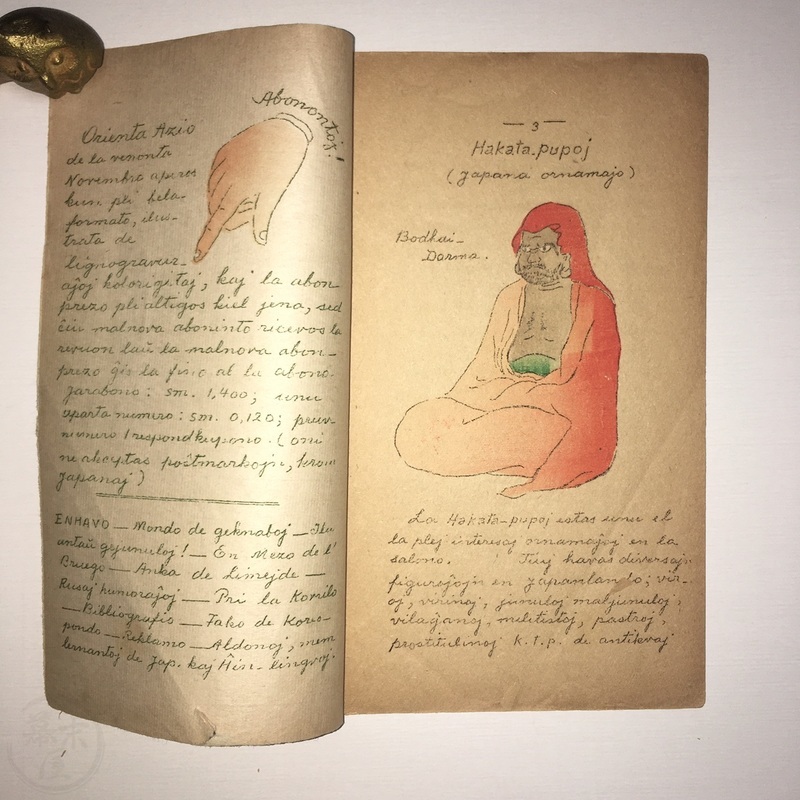 Abonontoj!
Orienta Azio
de la venonta
Novembro aperos
kun pli bela
formato, ilus-
trata de
lignogravur-
aĵoj kolorigitaj, kaj la abon-
prezo plialtigos kiel jena, sed
ĉiu malnova aboninto ricevos la
revuon laŭ la malnova abon-
prezo ĝis la fino al la abono.
jarabono: sm. 1,400; unu
aparta numero: sm. 0,120; pruv-
numero 1 respondkupono. (oni
ne akcytas poŝtmarkojn, krom
japanaj)
ENHAVO — Mondo de geknaboj —
antaŭ gejunuloj! — En Mezo de l'
Bruego — Anka de Limejde —
Rusaj humoraĵoj — Pri la Komilo
— Bibliografio — Fako de Kores-
pondo — Reklamo — Aldonoj, mem
lernantoj de Jap. kaj Ĥin-lingvoj.
— 3 —
Hakata-pupoj
(Japana ornamaĵo)
Bodhai-
Darma.
La Hakata-pupoj estas unu el
la plej interesaj ornamaĵoj en la
salono. Tiuj havas diversajn
figuraĵojn en Japanlando; vir-
oj, virinoj, junuloj maljunuloj,
vilaĝanoj, militistoj, pastroj,
prostituinoj k.t.p. de antikvaj